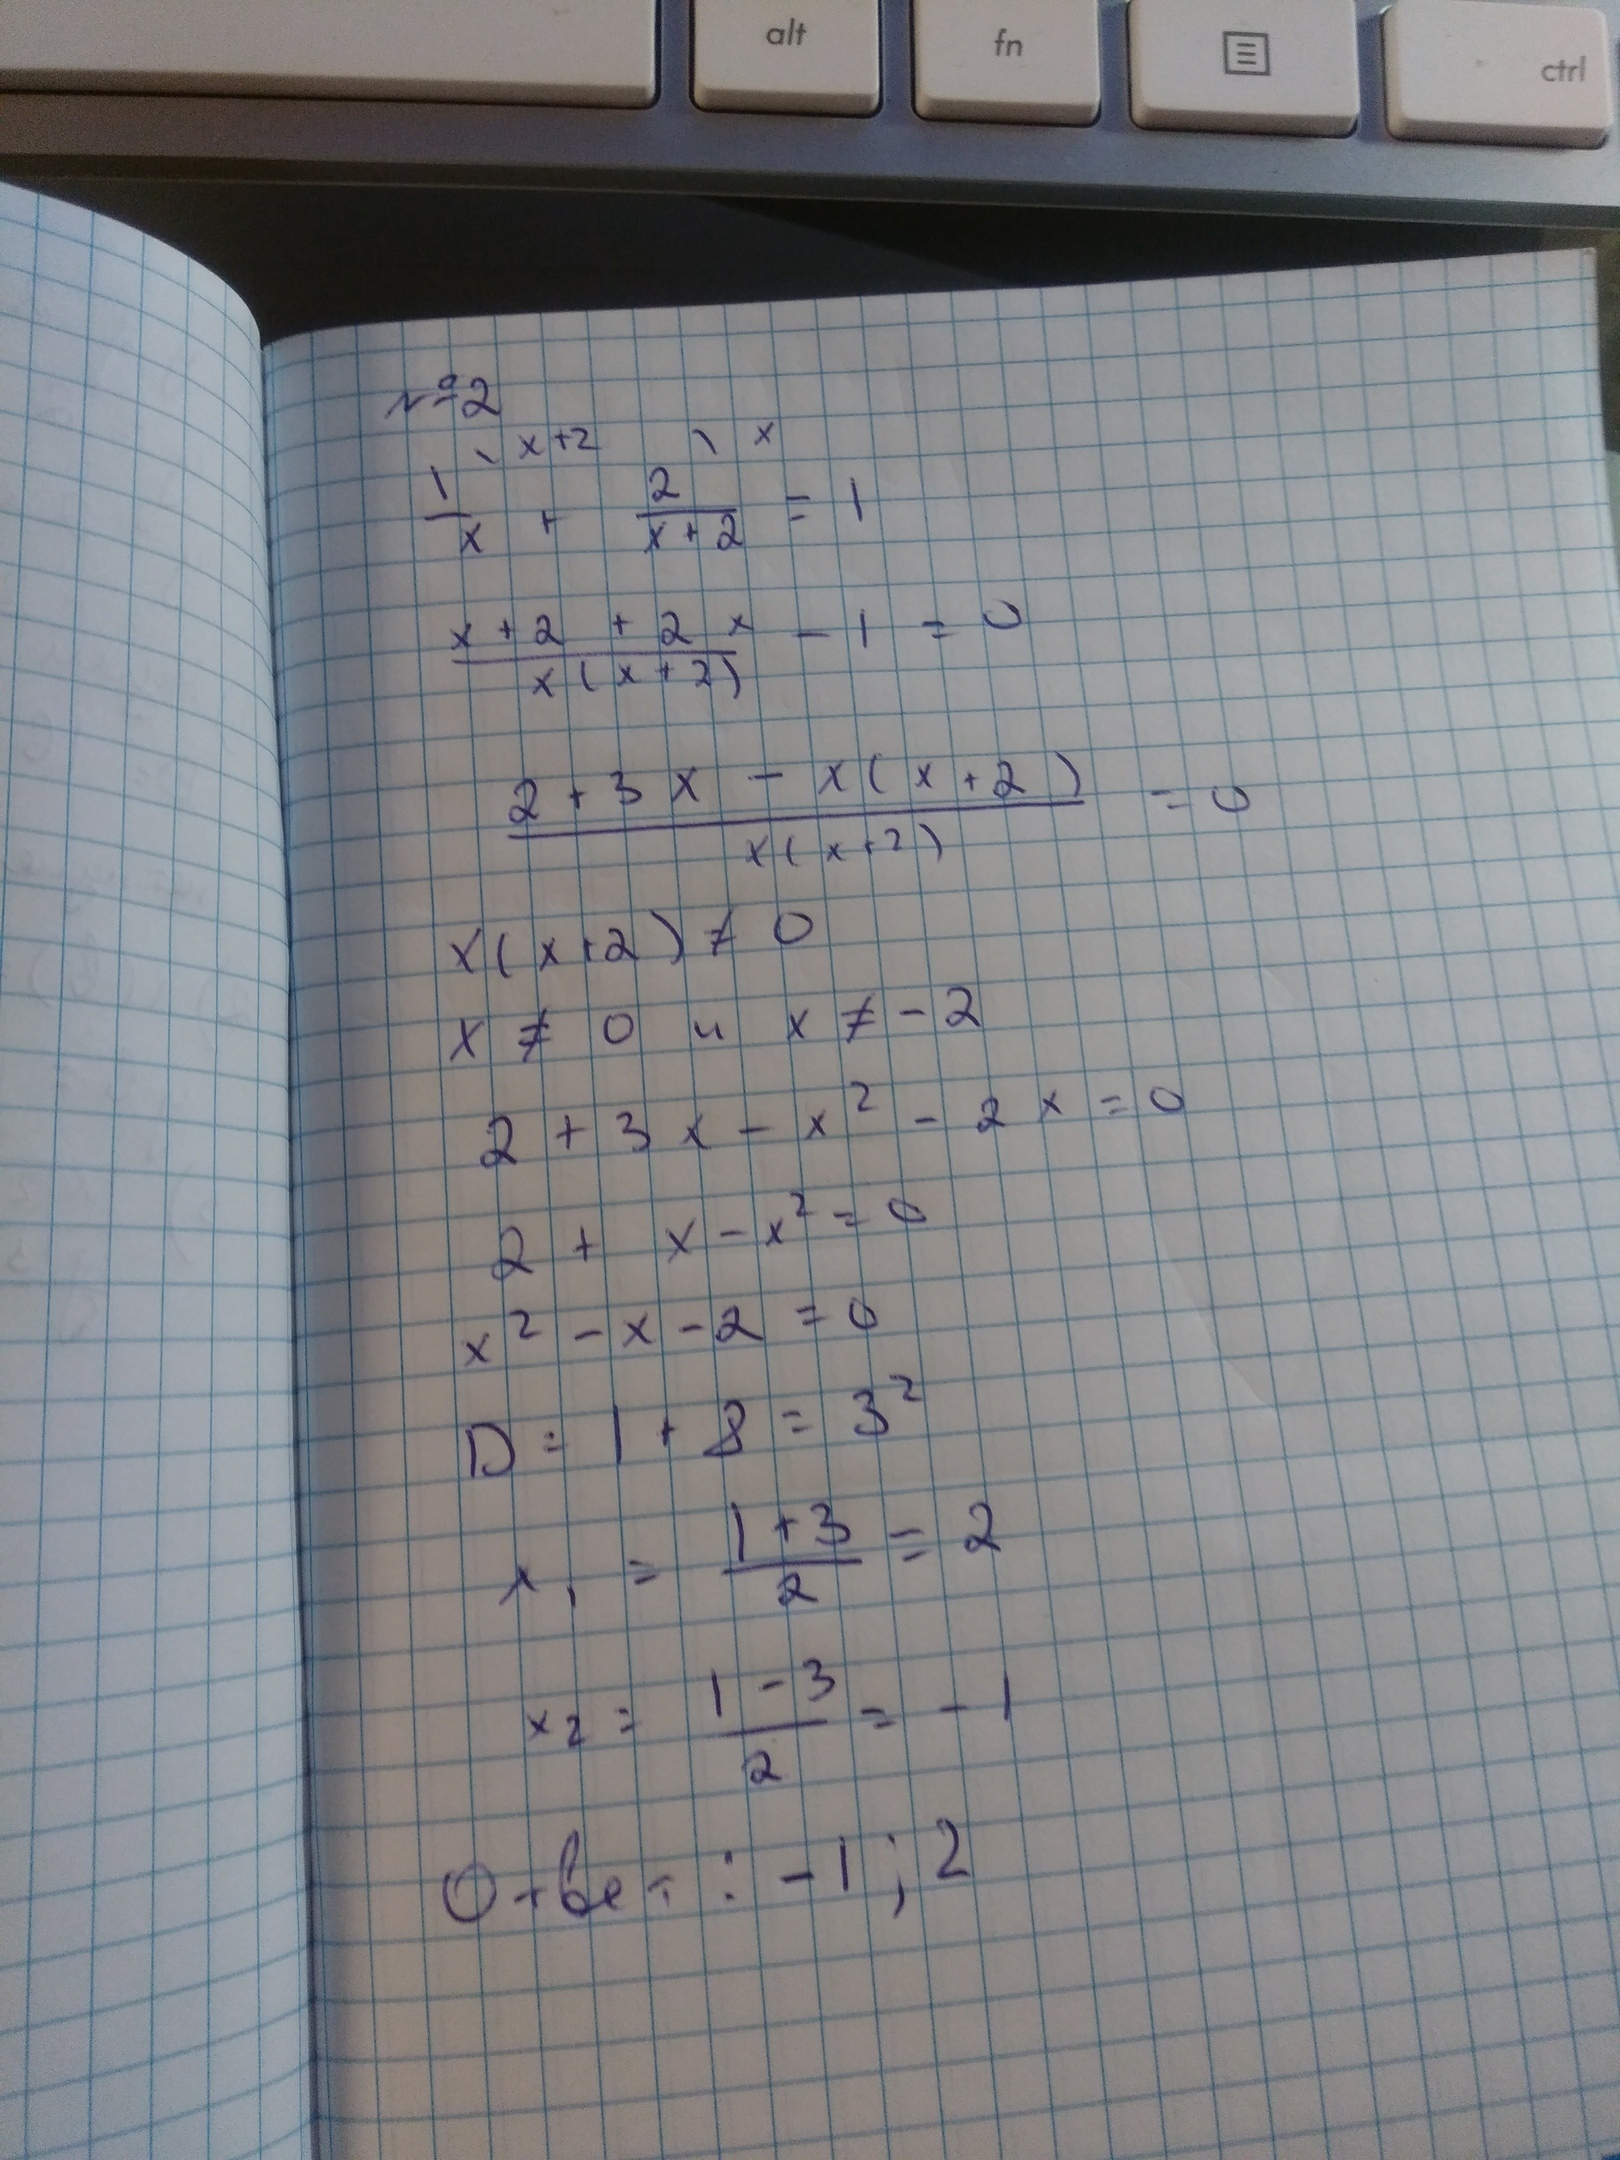 alt fn ctrl
№2
1/x \x+2 + 2/(x+2) \x = 1
(x+2+2x)/(x(x+2)) - 1 = 0
(2+3x-x(x+2))/(x(x+2)) = 0
x(x+2) ≠ 0
x ≠ 0 и x ≠ -2
2+3x-x²-2x=0
2+x-x²=0
x²-x-2=0
D=1+8=3²
x₁ = (1+3)/2 = 2
x₂ = (1-3)/2 = -1
Ответ: -1; 2